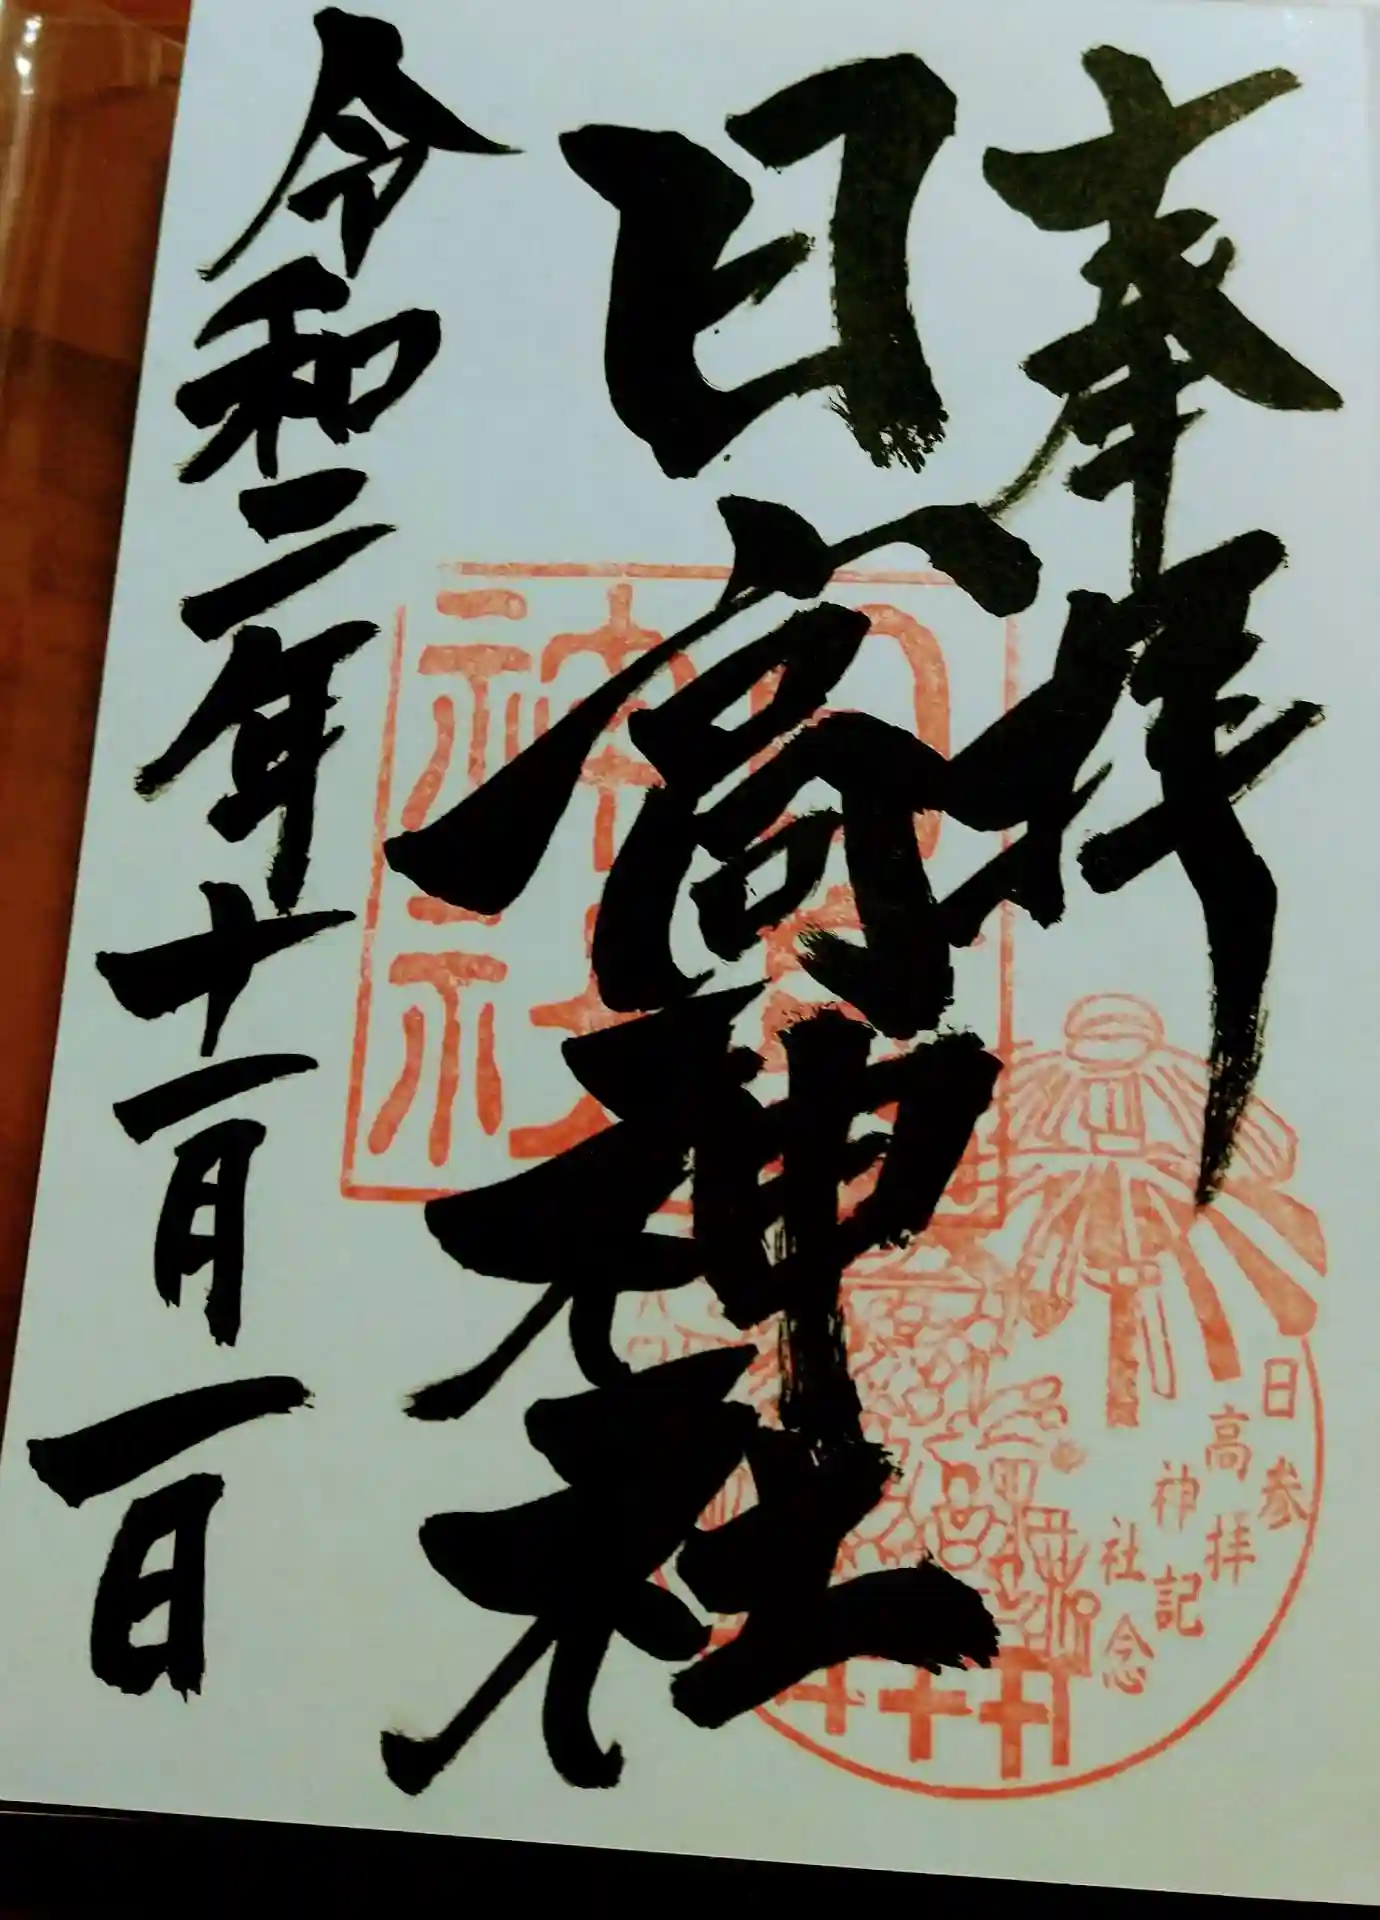 奉拝
日高神社
令和二年十一月一日
日高神社
参拝記念